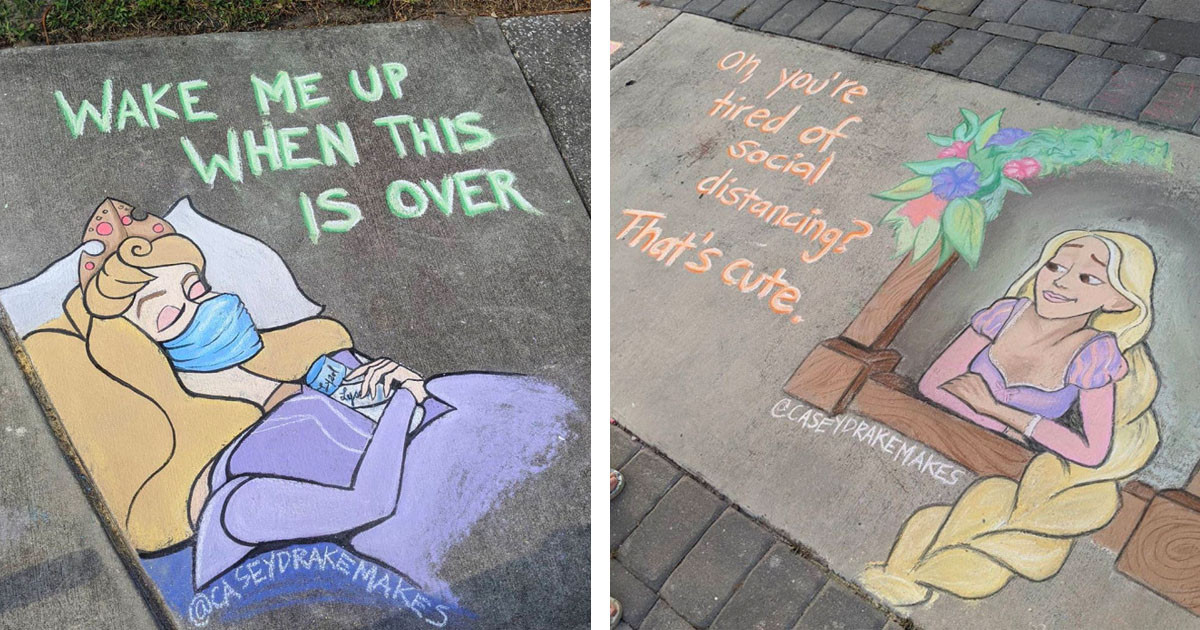 WAKE ME UP
WHEN THIS
IS OVER
Lysol
@CASEYDRAKEMAKES
Oh, you're
tired of
social
distancing?
That's cute.
@CASEYDRAKEMAKES